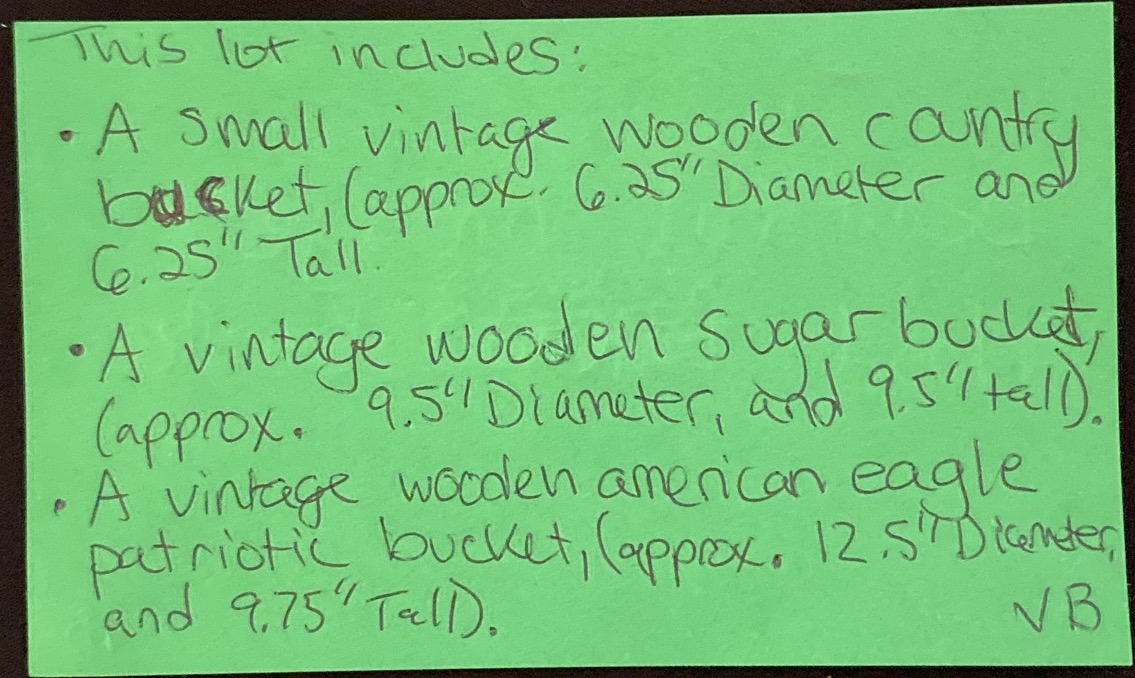 This lot includes:
• A small vintage wooden country
bucket, (approx. 6.25" Diameter and
6.25" Tall.
• A vintage wooden sugar bucket,
(approx. 9.5" Diameter, and 9.5" tall).
• A vintage wooden american eagle
patriotic bucket, (approx. 12.5" Diameter,
and 9.75" Tall).
VB